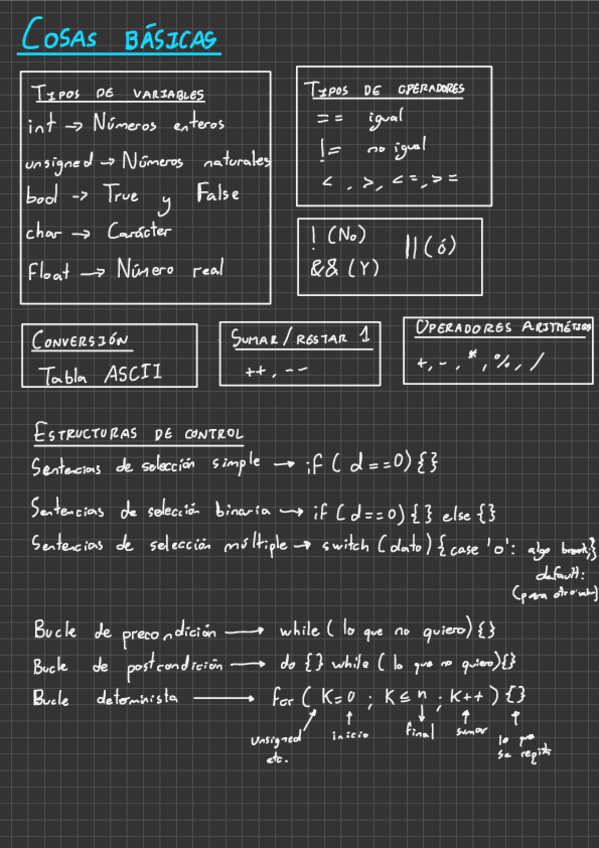 COSAS BÁSICAS
TIPOS DE VARIABLES
int → Números enteros
unsigned → Números naturales
bool -> True y False
char → Carácter
Float → Número real
TIPOS DE OPERADORES
== igual
!= no igual
< , >, < =, > =
! (No)
&& (Y)
|| (ó)
CONVERSIÓN
Tabla ASCII
SUMAR / RESTAR 1
++ , --
OPERADORES ARITMÉTICOS
+, - , *, %, /
ESTRUCTURAS DE CONTROL
Sentencias de selección simple → if ( d==0) {}
Sentencias de selección binaria → if (d==0) { } else {}
Sentencias de selección múltiple → switch (dato) { case 'o': algo break;}
default:
(para otro valor)
Bucle de precondición → while ( lo que no quiero) {}
Bucle de postcondición → do {} while ( lo que no quiero){}
Bucle determinista → for ( K=0 ; K ≤ n ; K++ ) {}
unsigned etc.
inicio
final
sumar
lo que se repite